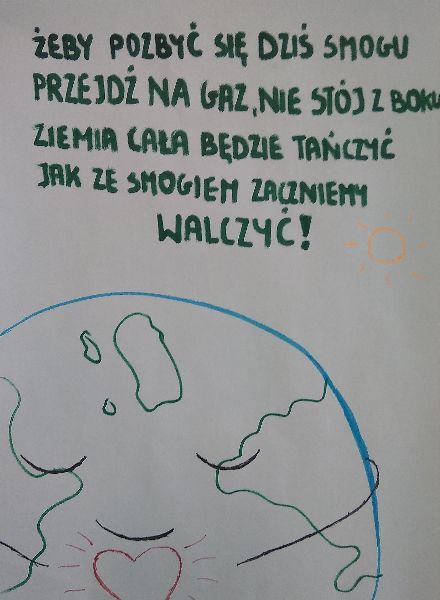 ŻEBY POZBYĆ SIĘ DZIŚ SMOGU
PRZEJDŹ NA GAZ, NIE STÓJ Z BOKU
ZIEMIA CAŁA BĘDZIE TAŃCZYĆ
JAK ZE SMOGIEM ZACZNIEMY
WALCZYĆ!